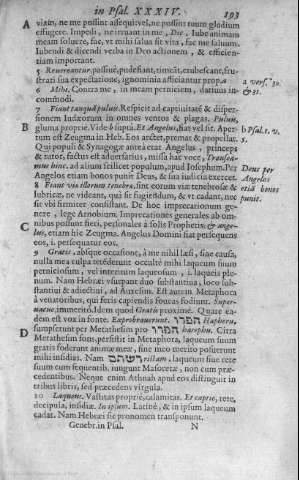 in Psal. XXXIV. 193
A viam, ne me possint assequi vel, ne possint tuum gladium
effugere. Impedi, ne irruant in me, Dic, Iube animam
meam soluere, fac, vt mihi salus sit vita, fac me saluum.
Iubendi & dicendi verba in Deo actionem, & efficien-
tiam important.
5 Reuereantur. possint, pudefiant, timeāt, erubescāt, fru-
strati sua expectatione, ignominia afficiantur propa- a vers. 30.
6 Mihi. Contra me, in meam perniciem, datiuus in- & 31.
commodi.
7 Fiant tanquā puluis. Respicit ad captiuitatē & disper-
sionem Iudæorum in omnes ventos & plagas. Puluis, b Psal. 1. v.
B gluma proprie. Vide ps. Et Angelus, fiat vel sit. Aper- 5.
tum est Zeugma in Heb. Eos arcēt, premat & propellat.
Qui populi & Synagogæ antea erat Angelus, princeps
& tutor, factus est aduersarius, missa hac voce, Transea-
mus hinc. ad alium scilicet populum, apud Iosephum. Per Deus per
Angelos etiam bonos punit Deus, & sua iudicia exercet. Angelos
8 Fiant viæ illorum tenebræ, sint eorum viæ tenebrosæ & etiā bonos
lubricæ, ne videant, quà sit fugiendum, & vt cadant, nec punit.
sit vbi firmiter consistant. De hoc imprecationum ge-
nere, lege Arnobium. Imprecationes generales ab om-
C nibus possunt fieri, personales à solis Prophetis. & ange-
lus, etiam hîc Zeugma. Angelus Domini sit persequens
eos, i. persequatur eos.
9 Gratis, absque occasione, à me nihil læsi, sine causa,
nulla mea culpa tetēderunt occultè mihi laqueum suum
perniciosum, vel interitum laqueosum, i. laqueis ple-
num. Nam Hebræi vsurpant duo substantiua, loco sub-
stantiui & adiectiui, ad Auxesim. Est autem Metaphora
à venatoribus, qui feris capiendis foueas fodiunt. Super-
uacuè, immeritò. Idem quod Gratis proximè. Quare ea-
dem est vox in fonte. Exprobrauerunt. חפרו Hapheru,
sumpserunt per Metathesim pro חרפו harephu. Citra
D Metathesim sons, persistit in Metaphora, laqueum suum
gratis foderunt animæ meæ, sine meo merito posuerunt
mihi insidias. Nam רשתם ristam, laqueum siue rete
suum cum sequentib. iungunt Masoretæ, non cum præ-
cedentibus. Neque enim Athnah apud eos distinguit in
tribus libris, sed præcedens virgula.
10 Laqueus. Vastitas propriè, calamitas. Et captio, rete,
decipula, insidiæ. In ipsum. Latinè, & in ipsum laqueum
cadat. Nam Hebræi sic pronomen transponunt.
Genebr. in Psal. N